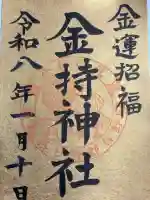 金運招福
金持神社
令和八年一月十日